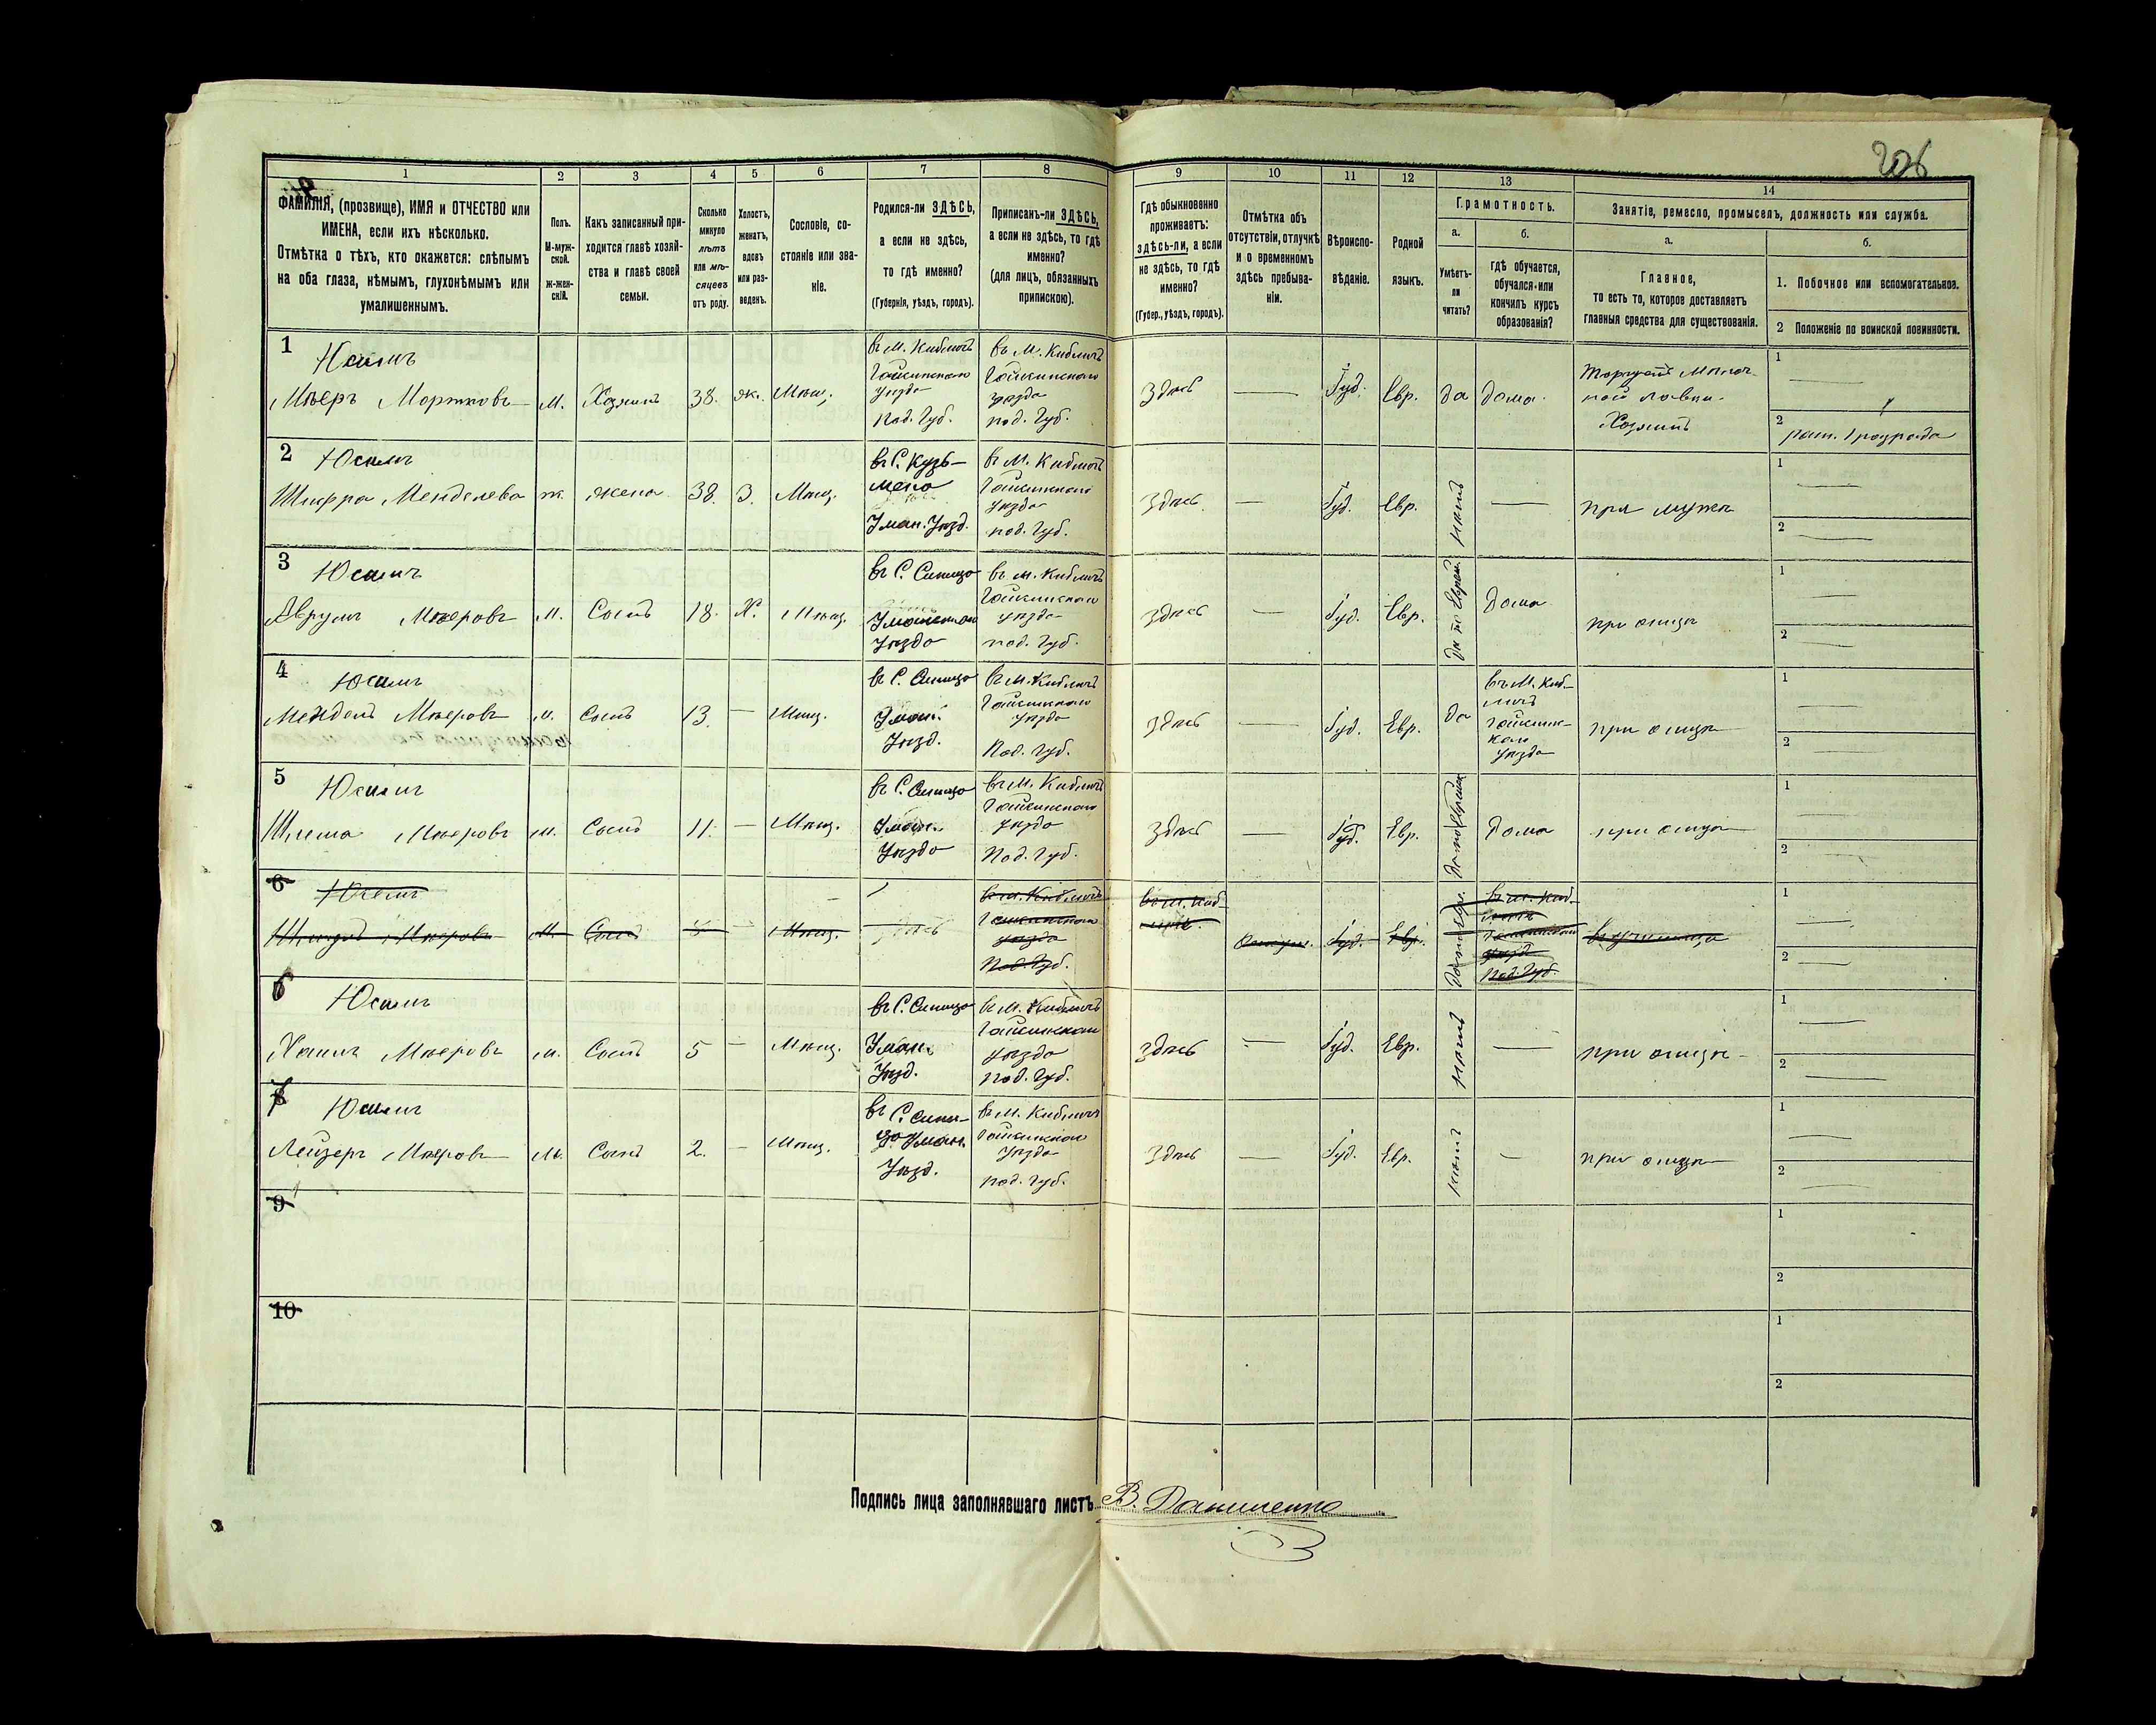 206
1
2
3
4
5
6
7
8
9
10
11
12
13
14
ФАМИЛІЯ, (прозвище), ИМЯ и ОТЧЕСТВО или
ИМЕНА, если ихъ нѣсколько.
Отмѣтка о тѣхъ, кто окажется: слѣпымъ
на оба глаза, нѣмымъ, глухонѣмымъ или
умалишеннымъ.
Полъ.
М-муж-
ской.
Ж-жен-
скій.
Какъ записанный при-
ходится главѣ хозяй-
ства и главѣ своей
семьи.
Сколько
минуло
лѣтъ
или мѣ-
сяцевъ
отъ роду.
Холостъ,
женатъ,
вдовъ
или раз-
веденъ.
Сословіе, со-
стояніе или зва-
ніе.
Родился-ли ЗДѢСЬ,
а если не здѣсь,
то гдѣ именно?
(Губернія, уѣздъ, городъ).
Приписанъ-ли ЗДѢСЬ,
а если не здѣсь, то гдѣ
именно?
(для лицъ, обязанныхъ
припискою).
Гдѣ обыкновенно
проживаетъ:
здѣсь-ли, а если
не здѣсь, то гдѣ
именно?
(Губер., уѣздъ, городъ).
Отмѣтка объ
отсутствіи, отлучкѣ
и о временномъ
здѣсь пребыва-
ніи.
Вѣроиспо-
вѣданіе.
Родной
языкъ.
Грамотность.
а.
Умѣетъ-
ли
читать?
б.
гдѣ обучается,
обучался или
кончилъ курсъ
образованія?
Занятіе, ремесло, промыселъ, должность или служба.
а.
Главное,
то есть то, которое доставляетъ
главныя средства для существованія.
б.
1. Побочное или вспомогательное.
2 Положеніе по воинской повинности.
1
Юсимъ
Мѣеръ Мортковъ
М.
Хозяинъ
38.
ж.
Мѣщ.
въ м. Кибличъ
Гайсинскаго
уѣзда
Под. Губ.
въ М. Кибличъ
Гайсинскаго
уѣзда
под. Губ.
Здѣсь
Іуд.
Евр.
да
дома.
Хозяинъ
1
2
2
Юсимъ
Шифра Менделева
ж.
жена
38.
З.
Мѣщ.
въ С. Кузь-
мено
Уман. Уѣзд.
въ М. Кибличъ
Гайсинскаго
Уѣзда
под. Губ.
Здѣсь
Іуд.
Евр.
нѣтъ
при мужѣ
1
2
3
Юсимъ
Аврумъ Мѣеровъ
М.
Сынъ
18.
Х.
Мѣщ.
въ С. Синицо
Уманскаго
Уѣзда
въ м. Кибличъ
Гайсинскаго
уѣзда
под. Губ.
здѣсь
Іуд.
Евр.
Дома
при отцѣ
1
2
4
Юсимъ
Мендель Мѣеровъ
м.
Сынъ
13.
Мѣщ.
въ С. Синицо
Уман.
Уѣзд.
въ м. Кибличъ
Гайсинскаго
Уѣзда
Под. Губ.
здѣсь
Іуд.
Евр.
да
въ М. Киб-
личъ
Гайсинс-
каго
уѣзда
при отцѣ
1
2
5
Юсимъ
Шлема Мѣеровъ
м.
Сынъ
11.
Мѣщ.
въ С. Синицо
Уман.
Уѣзда
въ м. Кибличъ
Гайсинскаго
Уѣзда
Под. Губ.
Здѣсь
Іуд.
Евр.
Дома
при отцѣ
1
2
6
Юсимъ
Мѣеровъ
М.
Сынъ
Мѣщ.
въ м. Кибличъ
Гайсинскаго
уѣзда
Под. Губ.
въ м. Киб-
личъ.
Іуд.
Евр.
въ м. Киб-
личъ
Гайсинскаго
уѣзд.
Под. Губ.
1
2
6
Юсимъ
Хаимъ Мѣеровъ
м.
Сынъ
5
Мѣщ.
въ С. Синицо
Уман.
Уѣзд.
въ М. Кибличъ
Гайсинскаго
уѣзда
под. Губ.
здѣсь
Іуд.
Евр.
нѣтъ
при отцѣ
1
2
7
Юсимъ
Лейзеръ Мѣеровъ
М.
Сынъ
2.
Мѣщ.
въ С. Сини-
цо Уман.
Уѣзд.
въ м. Кибличъ
Гайсинскаго
Уѣзда
под. Губ.
Здѣсь
Іуд.
Евр.
нѣтъ
при отцѣ
1
2
9
1
2
10
1
2
Подпись лица заполнявшаго листъ В. Даниленко